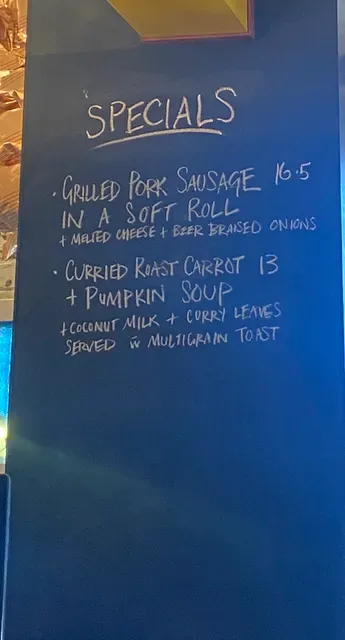 SPECIALS
· GRILLED PORK SAUSAGE 16.5
IN A SOFT ROLL
+ MELTED CHEESE + BEER BRAISED ONIONS
· CURRIED ROAST CARROT 13
+ PUMPKIN SOUP
+ COCONUT MILK + CURRY LEAVES
SERVED w̄ MULTIGRAIN TOAST